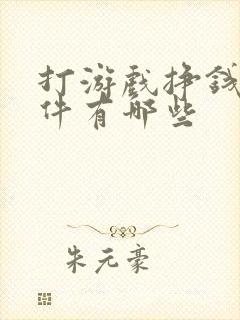 打游戏挣钱
件有哪些
朱元豪